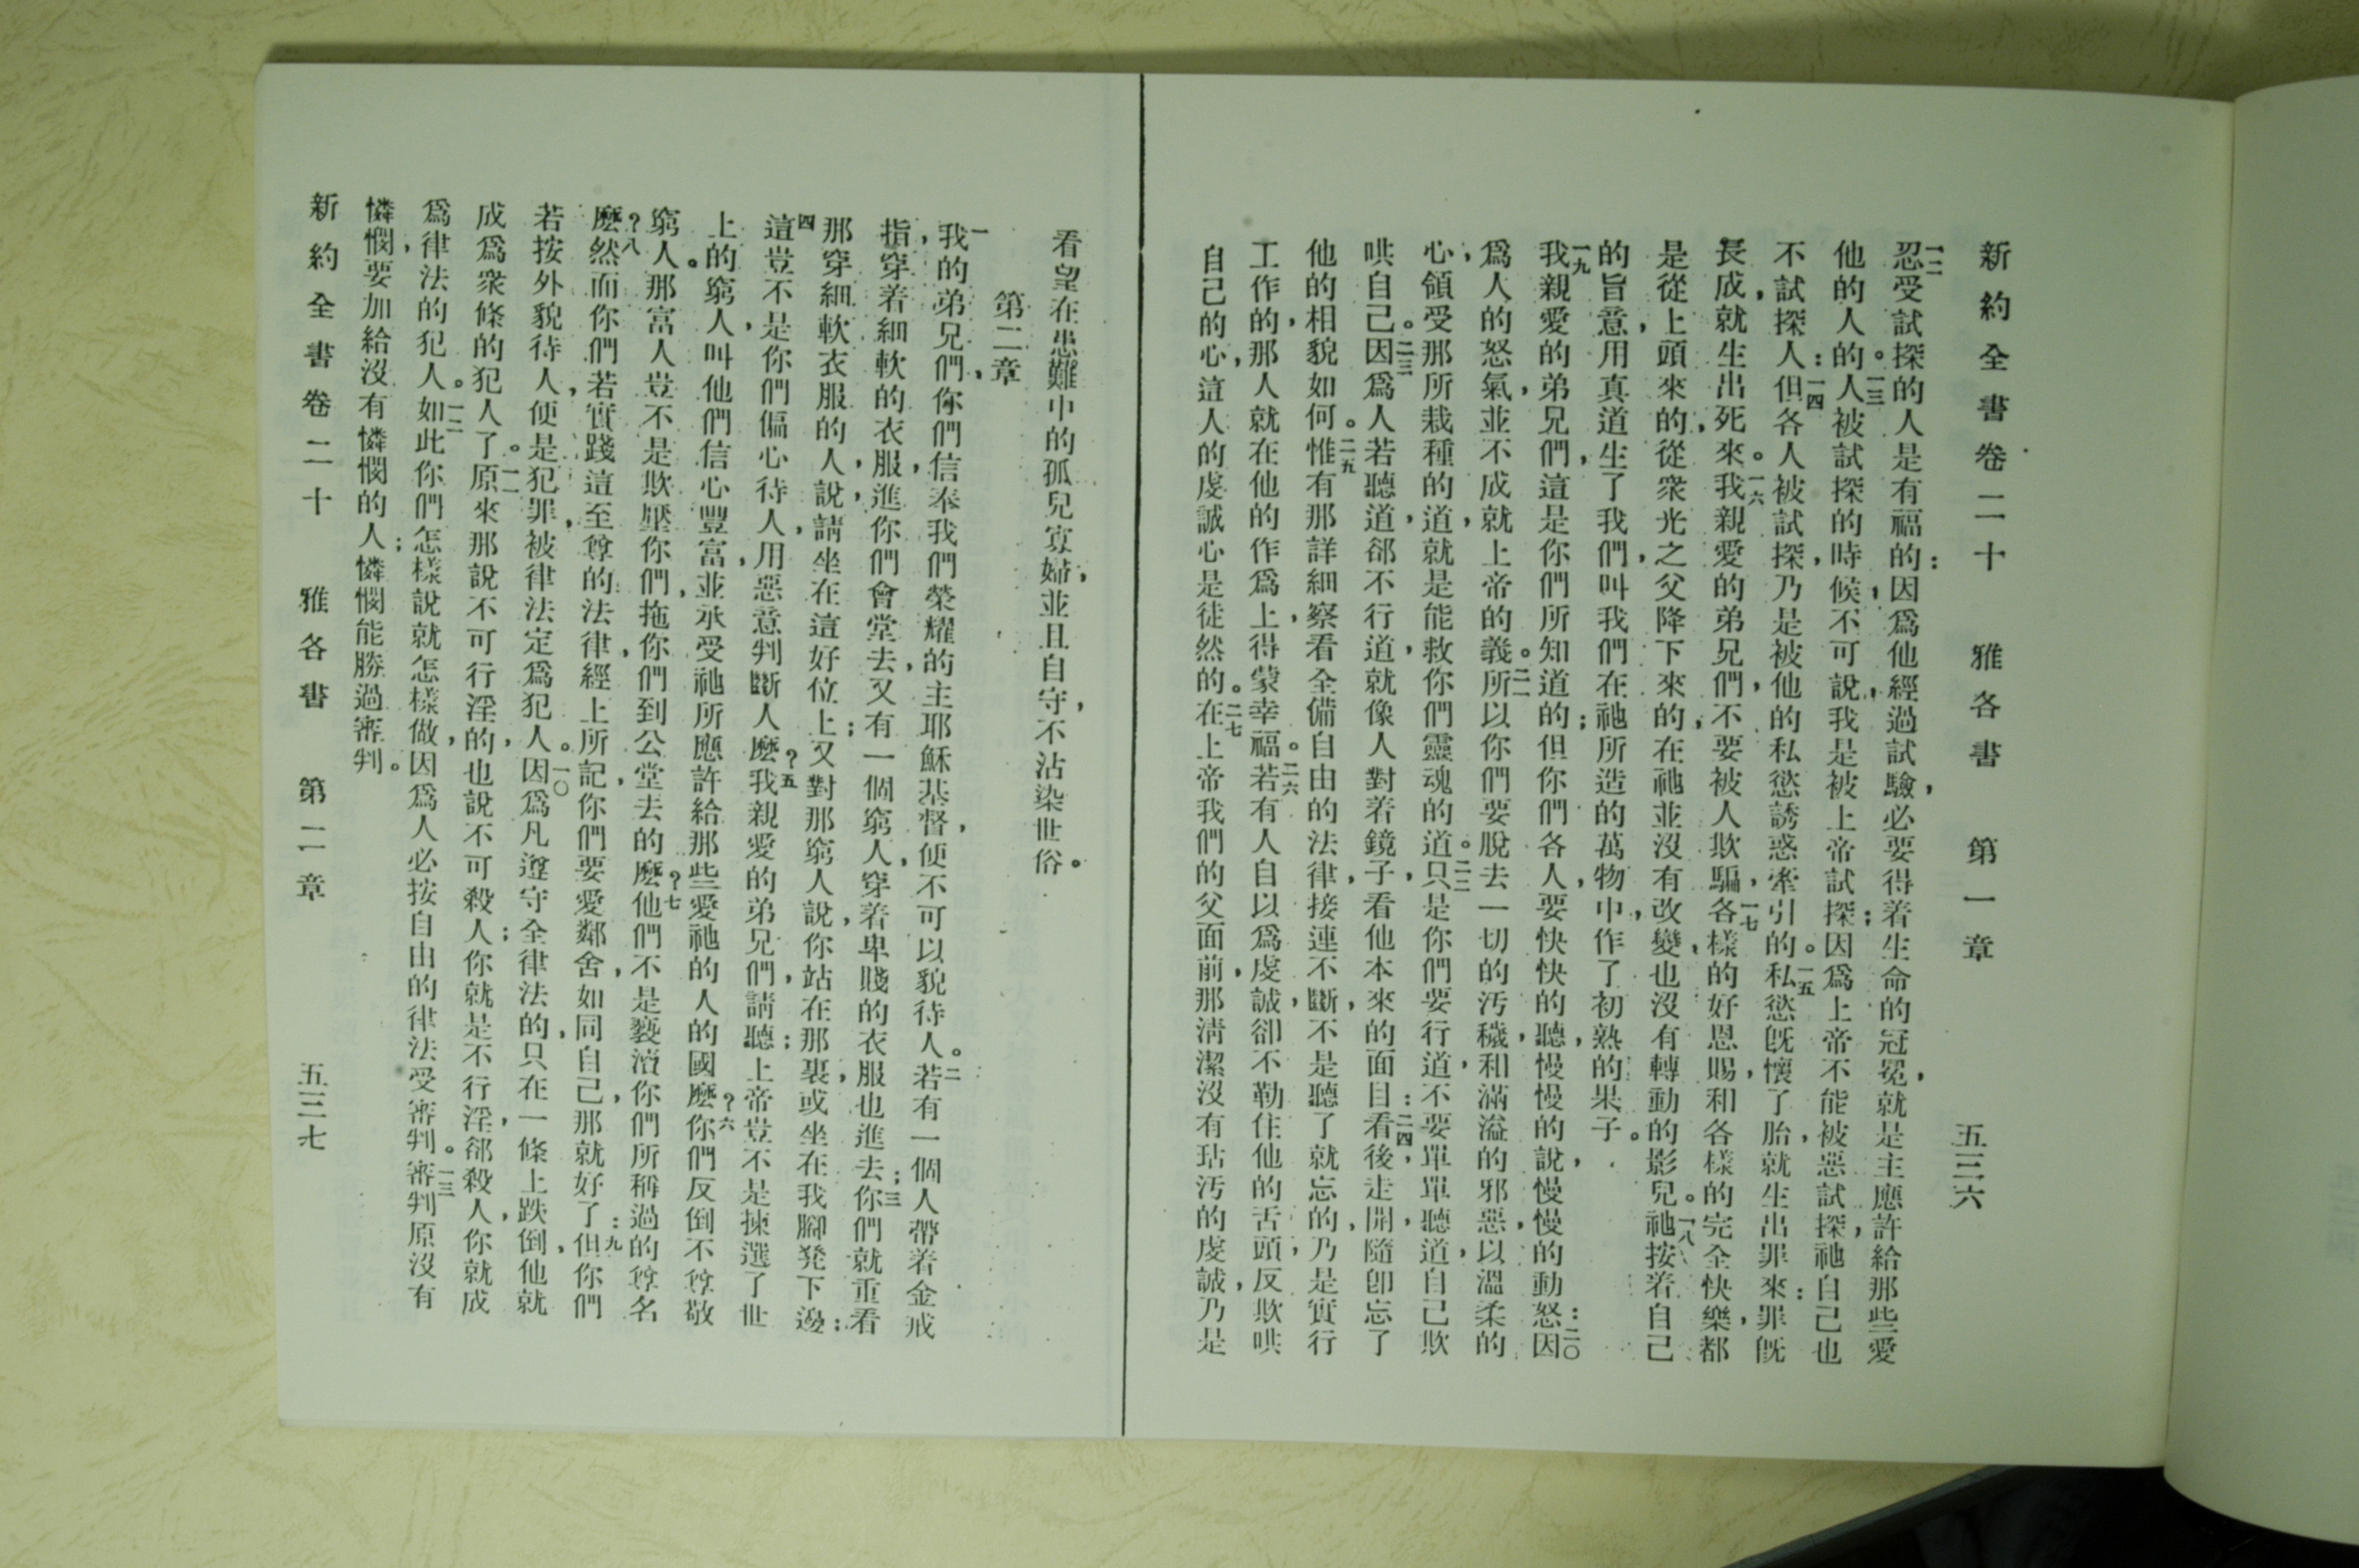 新約全書卷二十 雅各書 第一章 五三六
一二忍受試探的人是有福的：因爲他經過試驗，必要得着生命的冠冕，就是主應許給那些愛
他的人的。一三人被試探的時候，不可說，我是被上帝試探；因爲上帝不能被惡試探，祂自己也
不試探人：一四但各人被試探，乃是被他的私慾誘惑牽引的。一五私慾旣懷了胎，就生出罪來：罪旣
長成，就生出死來。一六我親愛的弟兄們，不要被人欺騙，一七各樣的好恩賜，和各樣的完全快樂，都
是從上頭來的，從衆光之父降下來的，在祂並沒有改變，也沒有轉動的影兒。一八祂按着自己
的旨意，用真道生了我們，叫我們在祂所造的萬物中，作了初熟的果子。
一九我親愛的弟兄們，這是你們所知道的；但你們各人，要快快的聽，慢慢的說，慢慢的動怒：二〇因
爲人的怒氣，並不成就上帝的義。二一所以你們要脫去一切的汚穢，和滿溢的邪惡，以溫柔的
心，領受那所栽種的道，就是能救你們靈魂的道。二二只是你們要行道，不要單單聽道，自己欺
哄自己。二三因爲人若聽道，郤不行道，就像人對着鏡子，看他本來的面目：二四看後，走開，隨卽忘了
他的相貌如何。二五惟有那詳細察看全備自由的法律，接連不斷，不是聽了就忘的，乃是實行
工作的，那人就在他的作爲上，得蒙幸福。二六若有人自以爲虔誠，卻不勒住他的舌頭，反欺哄
自己的心，這人的虔誠心是徒然的。二七在上帝我們的父面前，那淸潔沒有玷汚的虔誠，乃是
看望在患難中的孤兒寡婦，並且自守，不沾染世俗。
第二章
一我的弟兄們，你們信奉我們榮耀的主耶穌基督，便不可以貌待人。二若有一個人帶着金戒
指，穿着細軟的衣服，進你們會堂去，又有一個窮人，穿着卑賤的衣服也進去；三你們就重看
那穿細軟衣服的人，說，請坐在這好位上；又對那窮人說，你站在那裏，或坐在我腳凳下邊：
四這豈不是你們偏心待人，用惡意判斷人麽？五我親愛的弟兄們，請聽；上帝豈不是揀選了世
上的窮人，叫他們信心豐富，並承受祂所應許給那些愛祂的人的國麽？六你們反倒不尊敬
窮人。那富人豈不是欺壓你們，拖你們到公堂去的麽？七他們不是褻瀆你們所稱過的尊名
麽？八然而你們若實踐這至尊的法律，經上所記，你們要愛鄰舍，如同自己，那就好了：九但你們
若按外貌待人，便是犯罪，被律法定爲犯人。一〇因爲凡遵守全律法的，只在一條上跌倒，他就
成爲衆條的犯人了。一一原來那說不可行淫的，也說不可殺人；你就是不行淫，郤殺人，你就成
爲律法的犯人。一二如此你們怎樣說就怎樣做，因爲人必按自由的律法受審判。一三審判原沒有
憐憫，要加給沒有憐憫的人；憐憫能勝過審判。
新約全書卷二十 雅各書 第二章 五三七